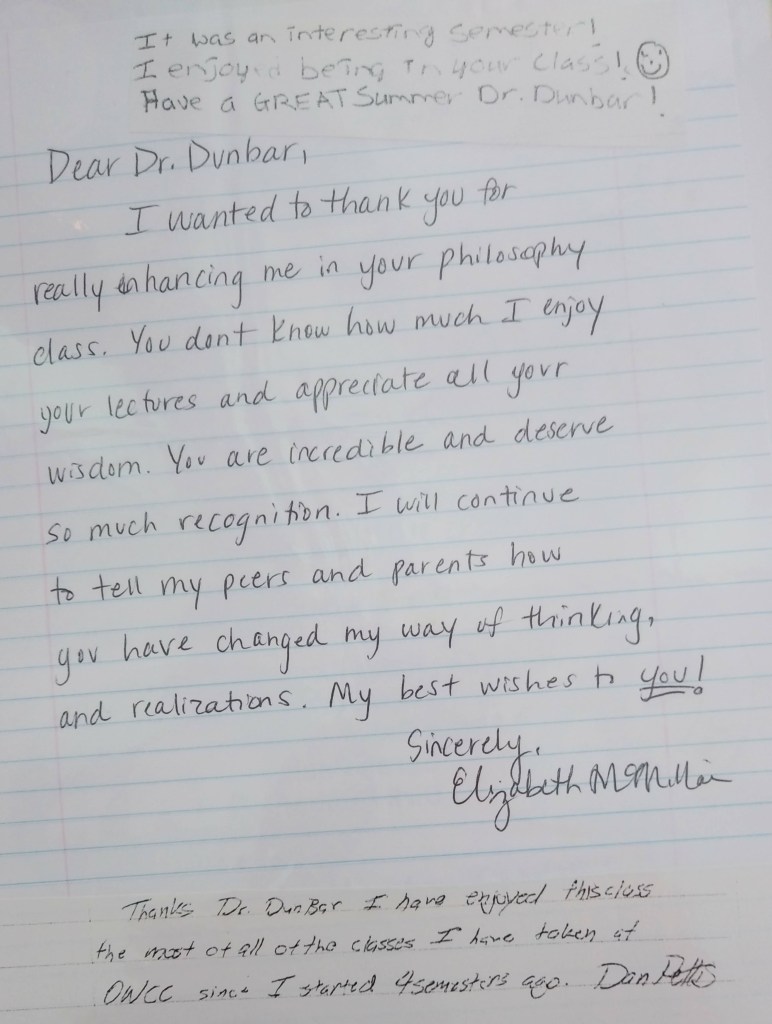 It was an interesting semester!
I enjoyed being in your class!
Have a GREAT Summer Dr. Dunbar!
Dear Dr. Dunbar,
I wanted to thank you for
really enhancing me in your philosophy
class. You dont know how much I enjoy
your lectures and appreciate all your
wisdom. You are incredible and deserve
so much recognition. I will continue
to tell my peers and parents how
you have changed my way of thinking,
and realizations. My best wishes to you!
Sincerely,
Elizabeth McMillan
Thanks Dr. DunBar I have enjoyed this class
the most of all of the classes I have taken at
OWCC since I started 4 semesters ago. Dan